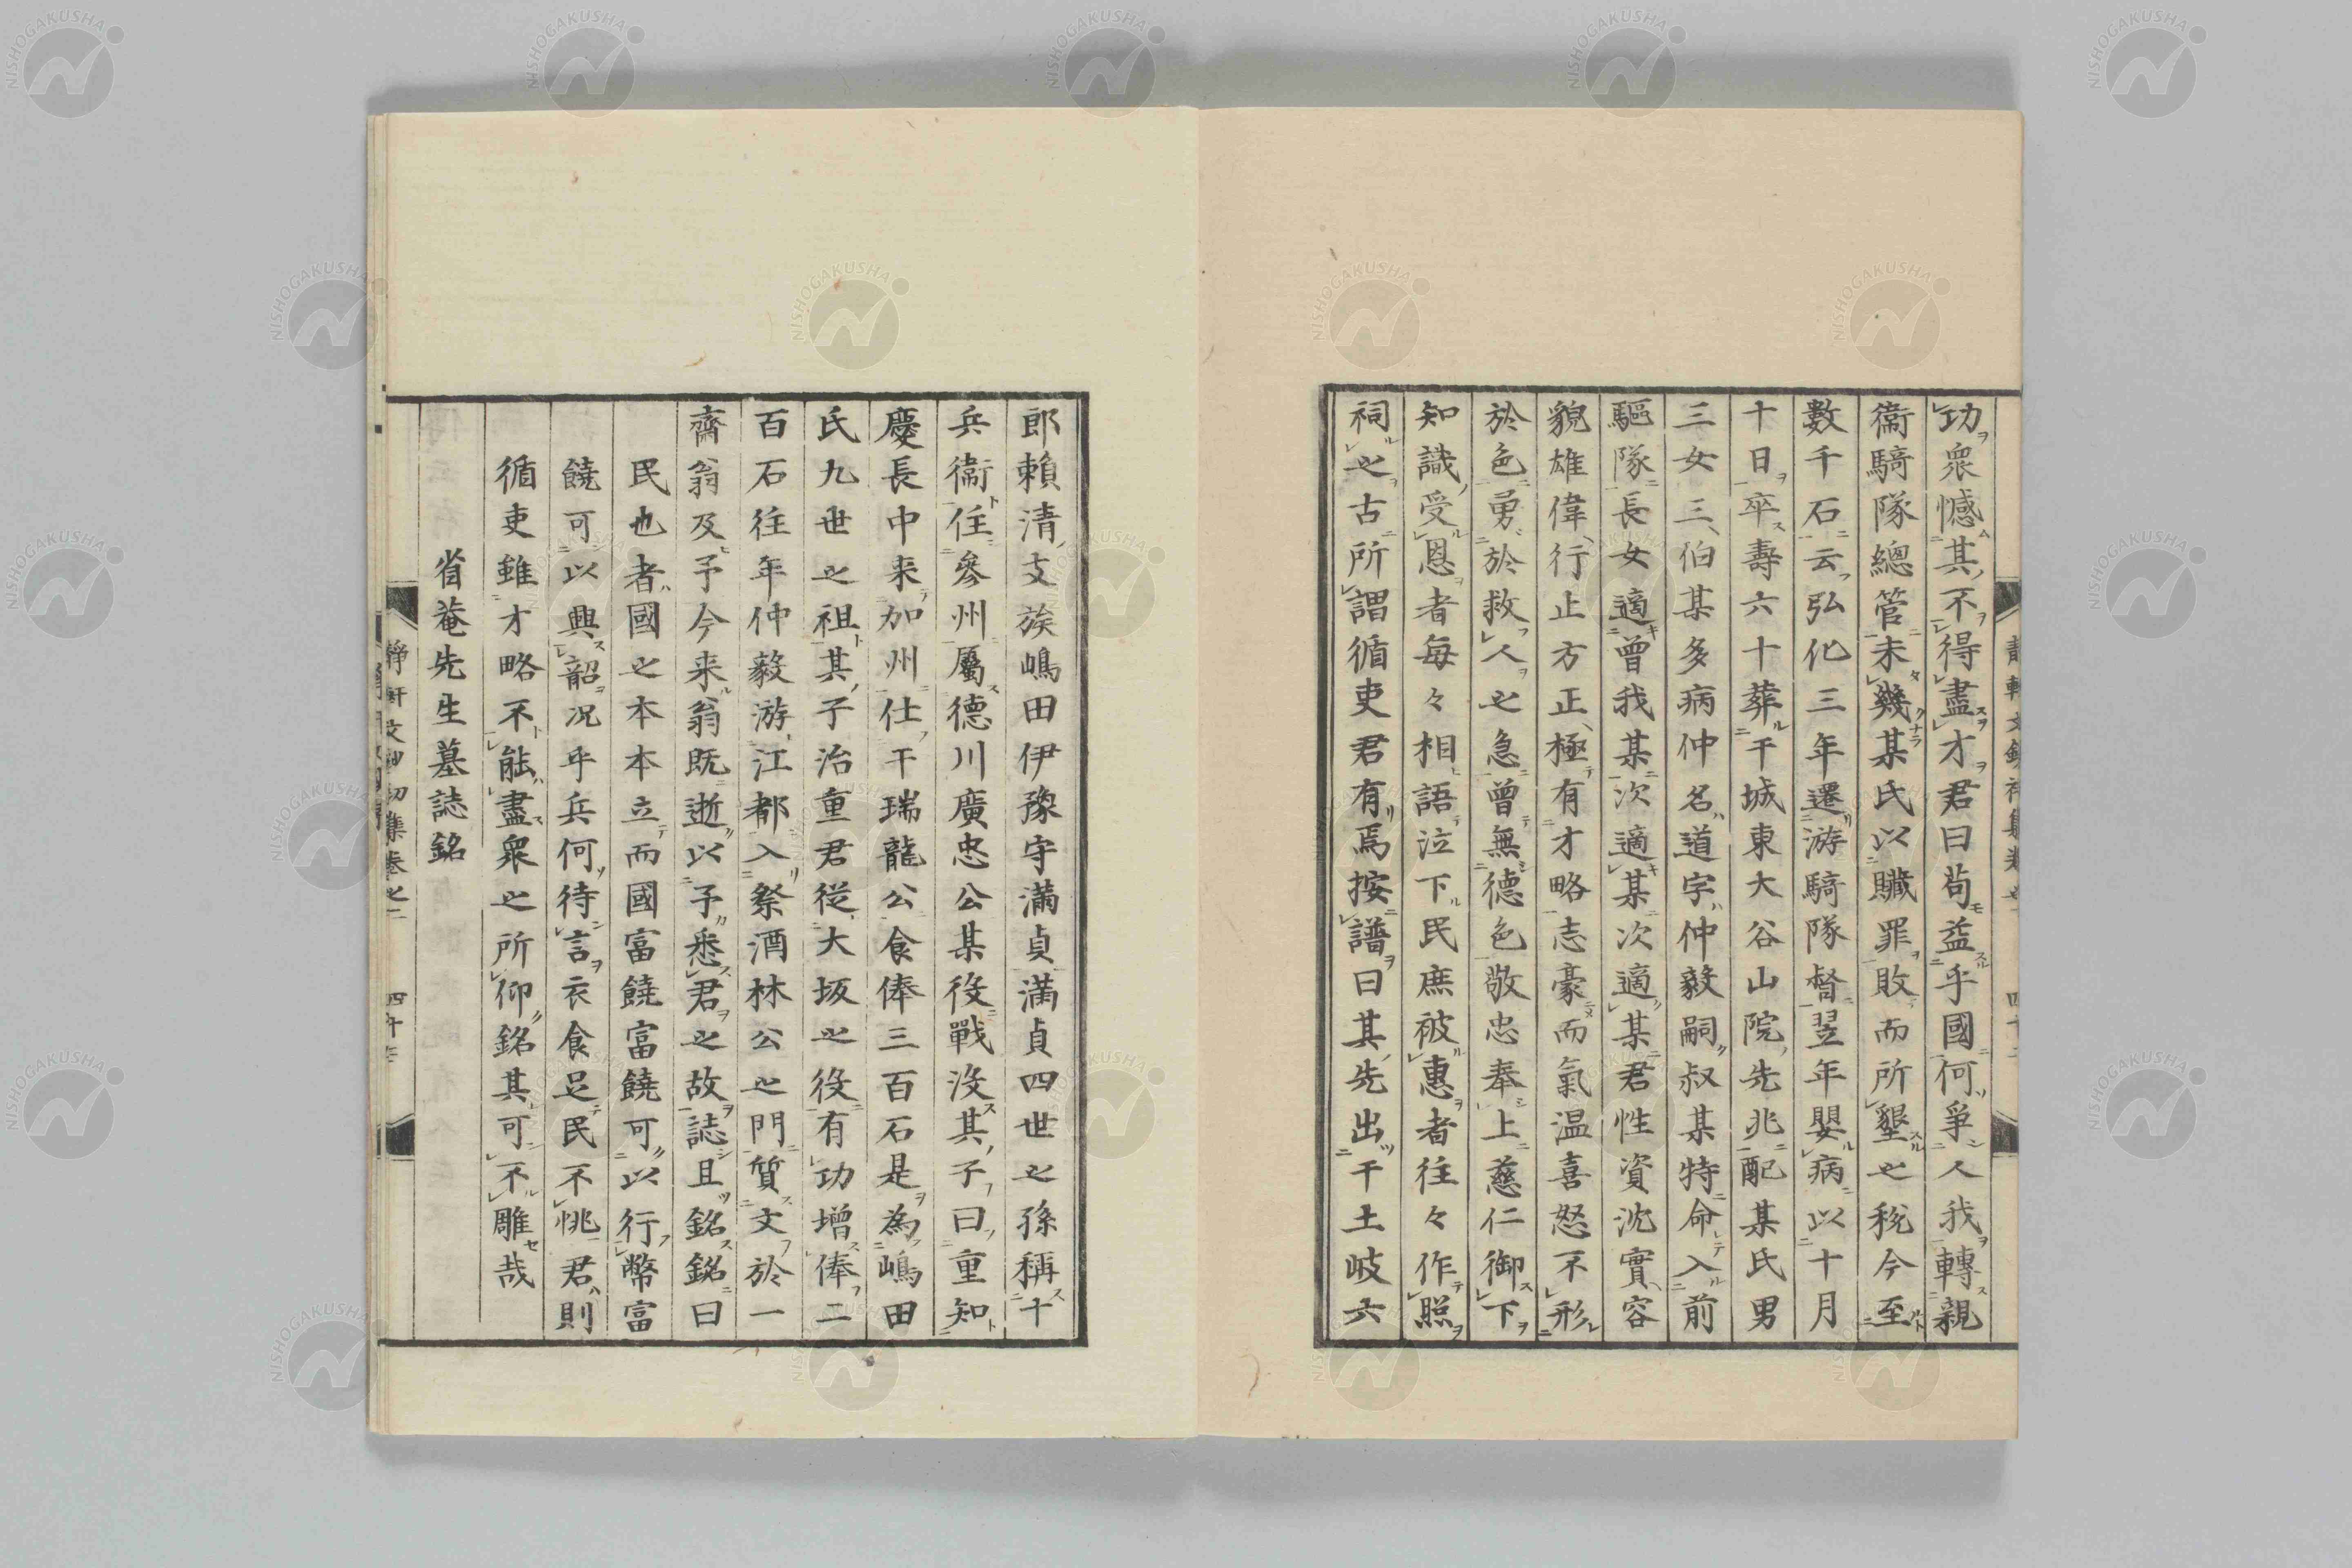 功衆憾其不得盡才君曰苟益乎國何爭人我轉親
衞騎隊總管未幾某氏以贜罪敗而所墾之稅今至
數千石云弘化三年遷游騎隊督翌年嬰病以十月
十日卒壽六十葬干城東大谷山院先兆配某氏男
三女三伯某多病仲名道字仲毅嗣叔某特命入前
驅隊長女適曾我某次適某次適某君性資沈實容
貌雄偉行止方正極有才略志豪而氣温喜怒不形
於色勇於救人之急曾無德色敬忠奉上慈仁御下
知識受恩者每々相語泣下民庶被惠者往々作照
祠之古所謂循吏君有焉按譜曰其先出干土岐六
郎頼清支族嶋田伊豫守滿貞滿貞四世之孫稱十
兵衞任參州屬德川廣忠公某役戰沒其子曰重知
慶長中来加州仕干瑞龍公食俸三百石是為嶋田
氏九世之祖其子治重君從大坂之役有功增俸二
百石往年仲毅游江都入祭酒林公之門質文於一
齋翁及予今来翁既逝以予悉君之故誌且銘銘曰
民也者國之本本立而國富饒富饒可以行幣富
饒可以興韶况乎兵何待言衣食足民不恌君則
循吏雖才略不能盡衆之所仰銘其可不雕哉
省菴先生墓誌銘